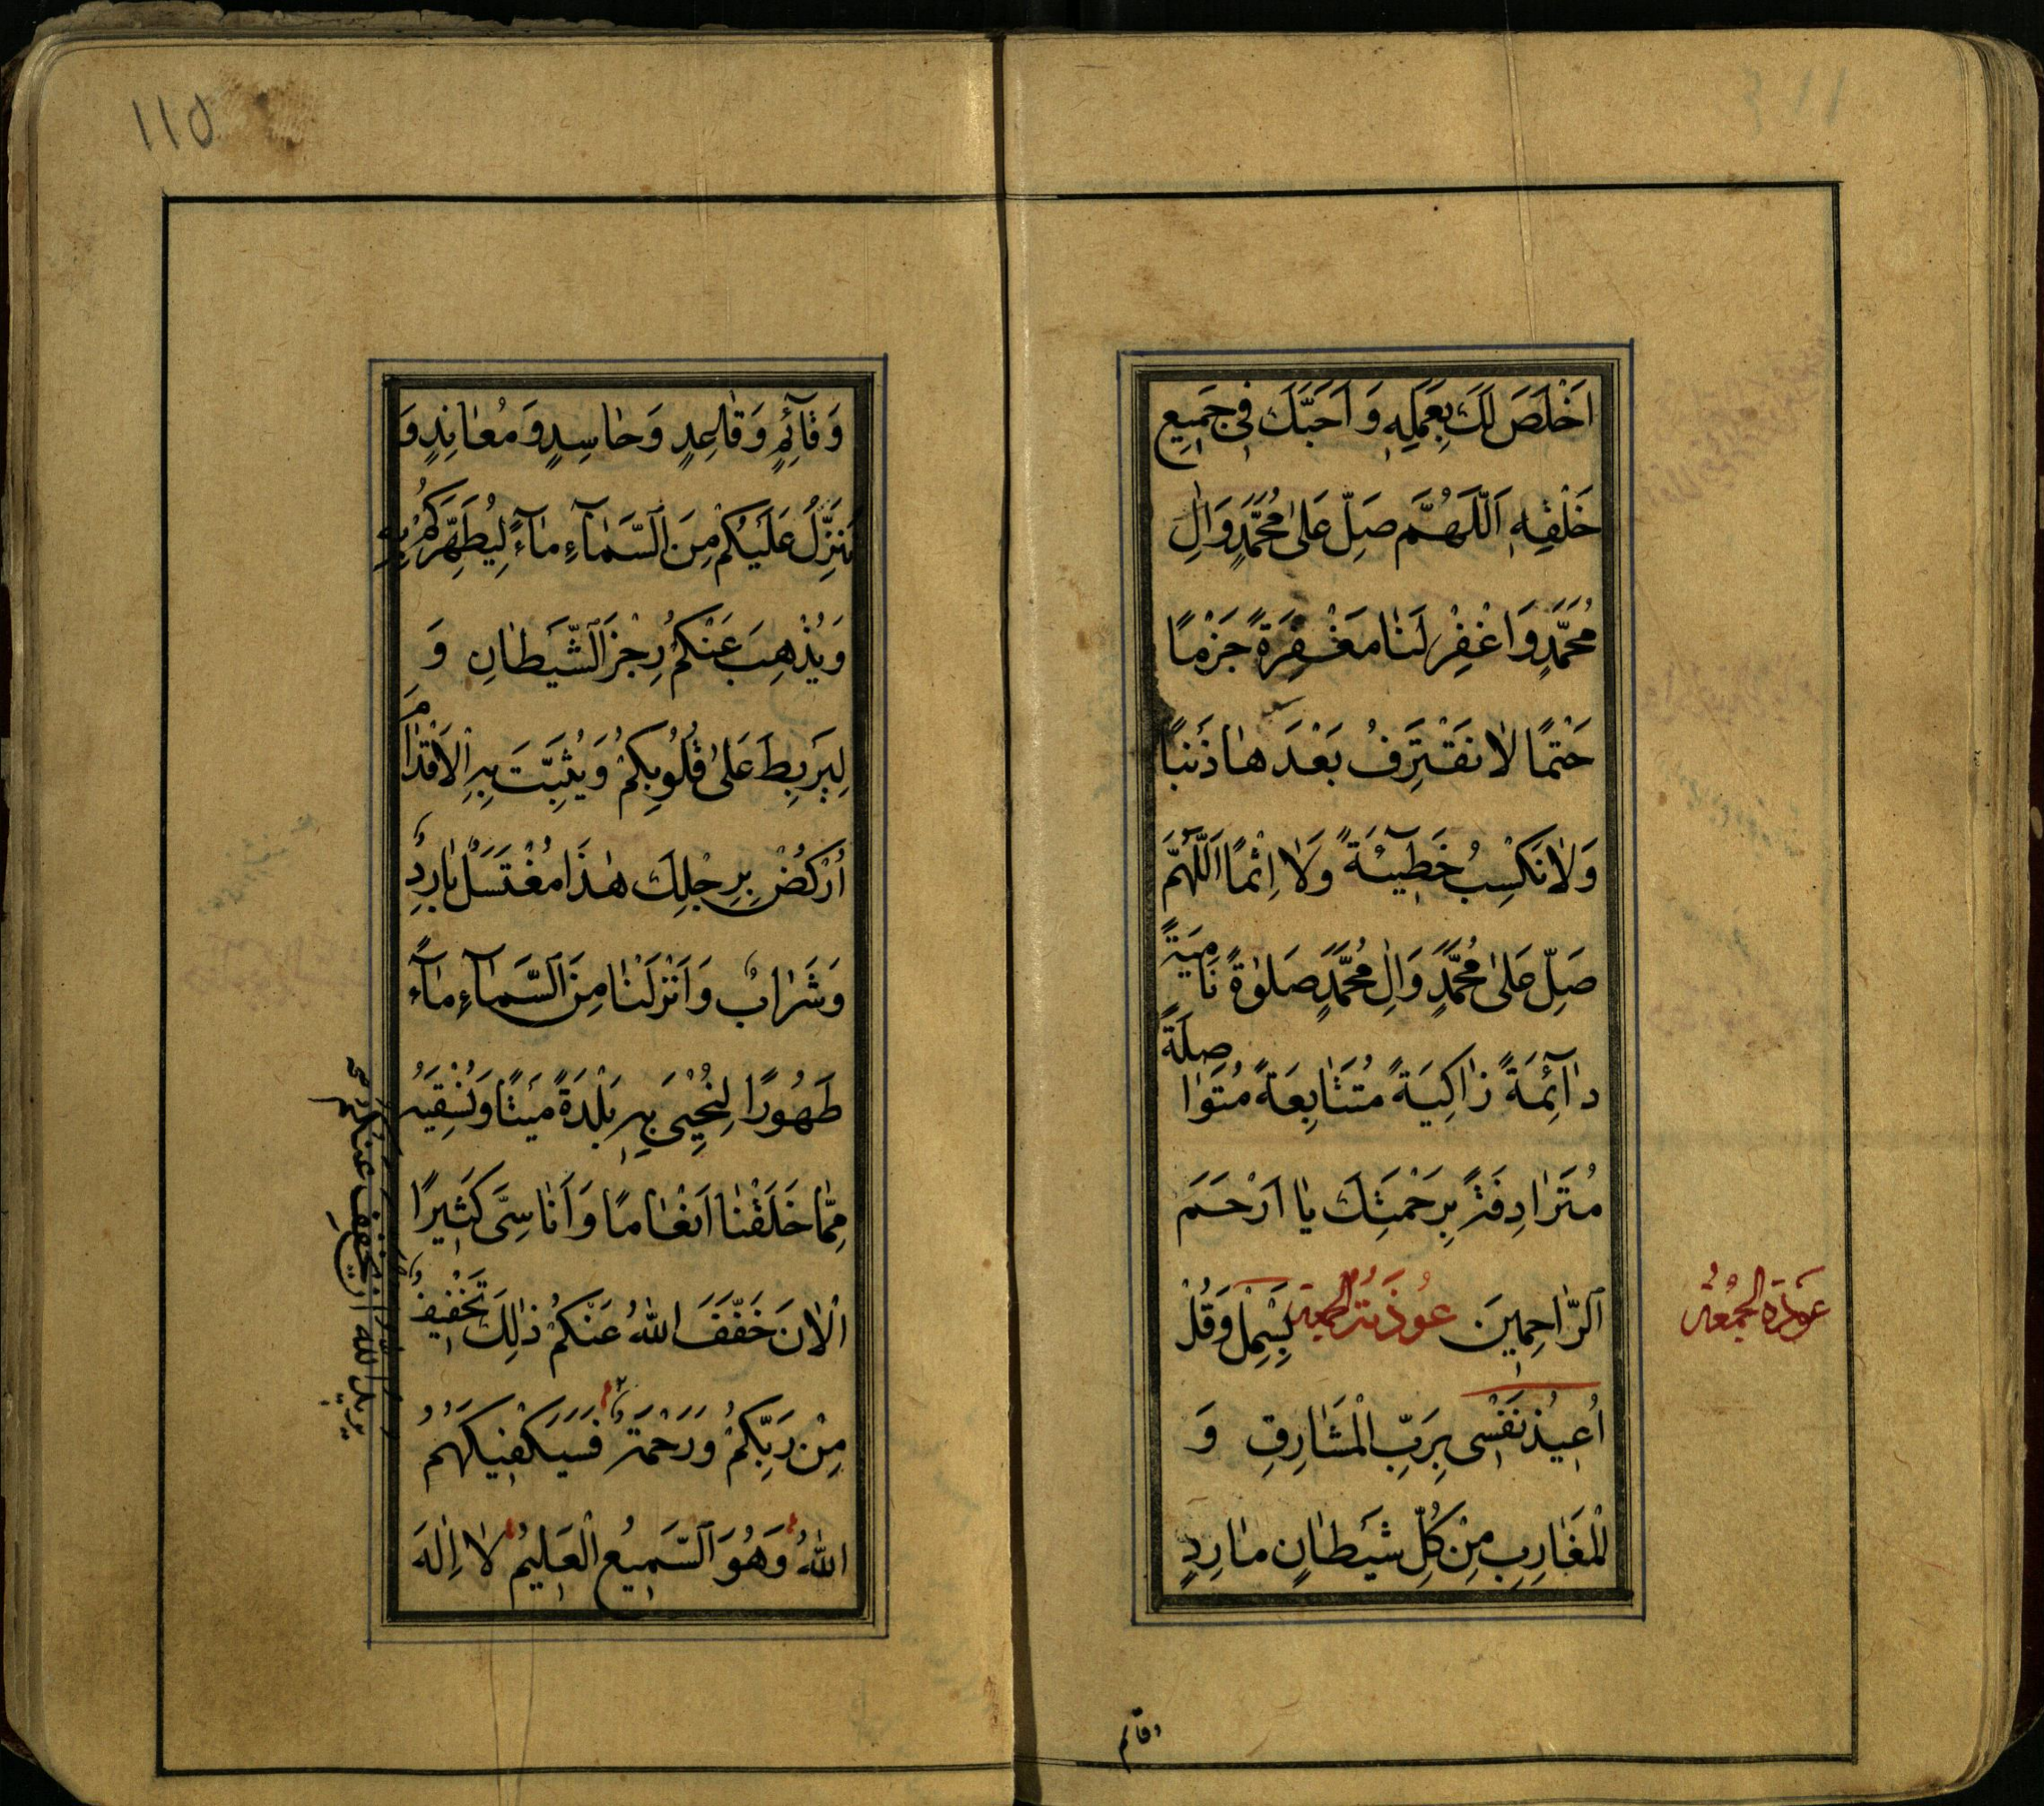 اَخْلَصَ لَكَ بِعَمَلِهِ وَ اَحَبَّكَ فِى جَمِيعِ
خَلْقِهِ اَللّٰهُمَّ صَلِّ عَلىٰ مُحَمَّدٍ وَاٰلِ
مُحَمَّدٍ وَاغْفِرْ لَنٰا مَغْفِرَةً جَزْمًا
حَتْمًا لاٰ نَقْتَرِفُ بَعْدَهٰا ذَنْبًا
وَلاٰ نَكْسِبُ خَطٖيٓئَةً وَلاٰ اِثْمًا اَللّٰهُمَّ
صَلِّ عَلىٰ مُحَمَّدٍ وَاٰلِ مُحَمَّدٍ صَلوٰةً نٰامِيَةً
دٰآئِمَةً زٰاكِيَةً مُتَتٰابِعَةً مُتَوٰاصِلَةً
مُتَرٰادِفَةً بِرَحْمَتِكَ يٰا اَرْحَمَ
اَلرّٰاحِمِينَ عُوذَةُ الجمعة بَسْمِلْ وَقُلْ
عوذة الجمعة
اُعِيذُ نَفْسِى بِرَبِّ الْمَشٰارِقِ وَ
الْمَغٰارِبِ مِنْ كُلِّ شَيْطٰانٍ مٰارِدٍ
وقائم
١١٥
وَ قٰآئِمٍ وَ قٰاعِدٍ وَ حٰاسِدٍ وَ مُعٰانِدٍ وَ
يُنَزِّلُ عَلَيْكُمْ مِنَ السَّمٰآءِ مٰآءً لِيُطَهِّرَكُمْ بِهِ
وَ يُذْهِبَ عَنْكُمْ رِجْزَ الشَّيْطٰانِ وَ
لِيَرْبِطَ عَلىٰ قُلُوبِكُمْ وَ يُثَبِّتَ بِهِ الْاَقْدٰامَ
اُرْكُضْ بِرِجْلِكَ هٰذَا مُغْتَسَلٌ بٰارِدٌ
وَ شَرٰابٌ وَ اَنْزَلْنٰا مِنَ السَّمٰآءِ مٰآءً
طَهُورًا لِنُحْيِىَ بِهِ بَلْدَةً مَيْتًا وَ نُسْقِيَهُ
مِمّٰا خَلَقْنٰا اَنْعٰامًا وَ اَنٰاسِىَّ كَثِيرًا
اَلْاٰنَ خَفَّفَ اللّٰهُ عَنْكُمْ ذٰلِكَ تَخْفِيفٌ
مِنْ رَبِّكُمْ وَ رَحْمَةٌ فَسَيَكْفِيكَهُمُ
اللّٰهُ وَ هُوَ السَّمِيعُ الْعَلِيمُ لاٰ اِلٰهَ
يريد الله ان يخفف عنكم